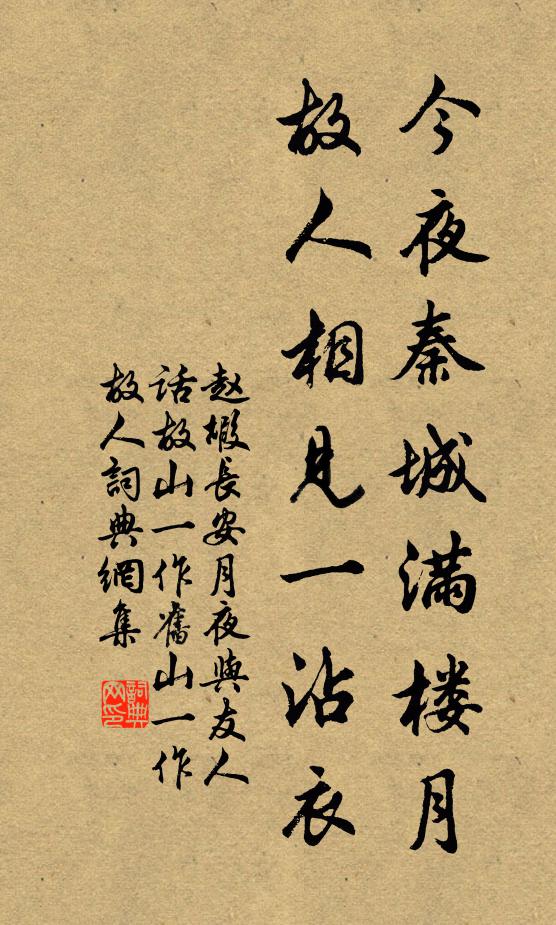 今夜秦城满楼月
故人相见一沾衣
赵嘏長安月夜與友人
话故山一作舊山一作
故人詞典網集
詞典
网印